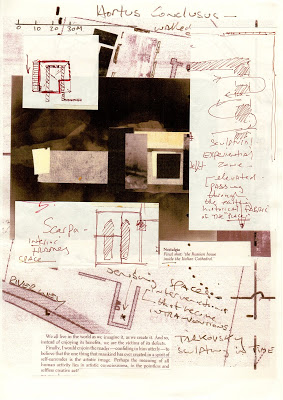 Hortus Conclusus –
walled
0 10 20 30M
SCULPTURAL
EXPERIENTIAL
ZONE –
[elevated
passing
through
the
historical fabric
of the place
5.
Scarpa –
Interior
JOURNEY
SPACE
Nostalgia
Final shot: 'the Russian house
inside the Italian Cathedral.'
SPACES –
interventions
[that become
INTRAVENTIONS
TARKOVSKY
SCULPTING IN TIME
We all live in the world as we imagine it, as we create it. And so,
instead of enjoying its benefits, we are the victims of its defects.
Finally, I would enjoin the reader – confiding in him utterly – to
believe that the one thing that mankind has ever created in a spirit of
self-surrender is the artistic image. Perhaps the meaning of all
human activity lies in artistic consciousness, in the pointless and
selfless creative act?